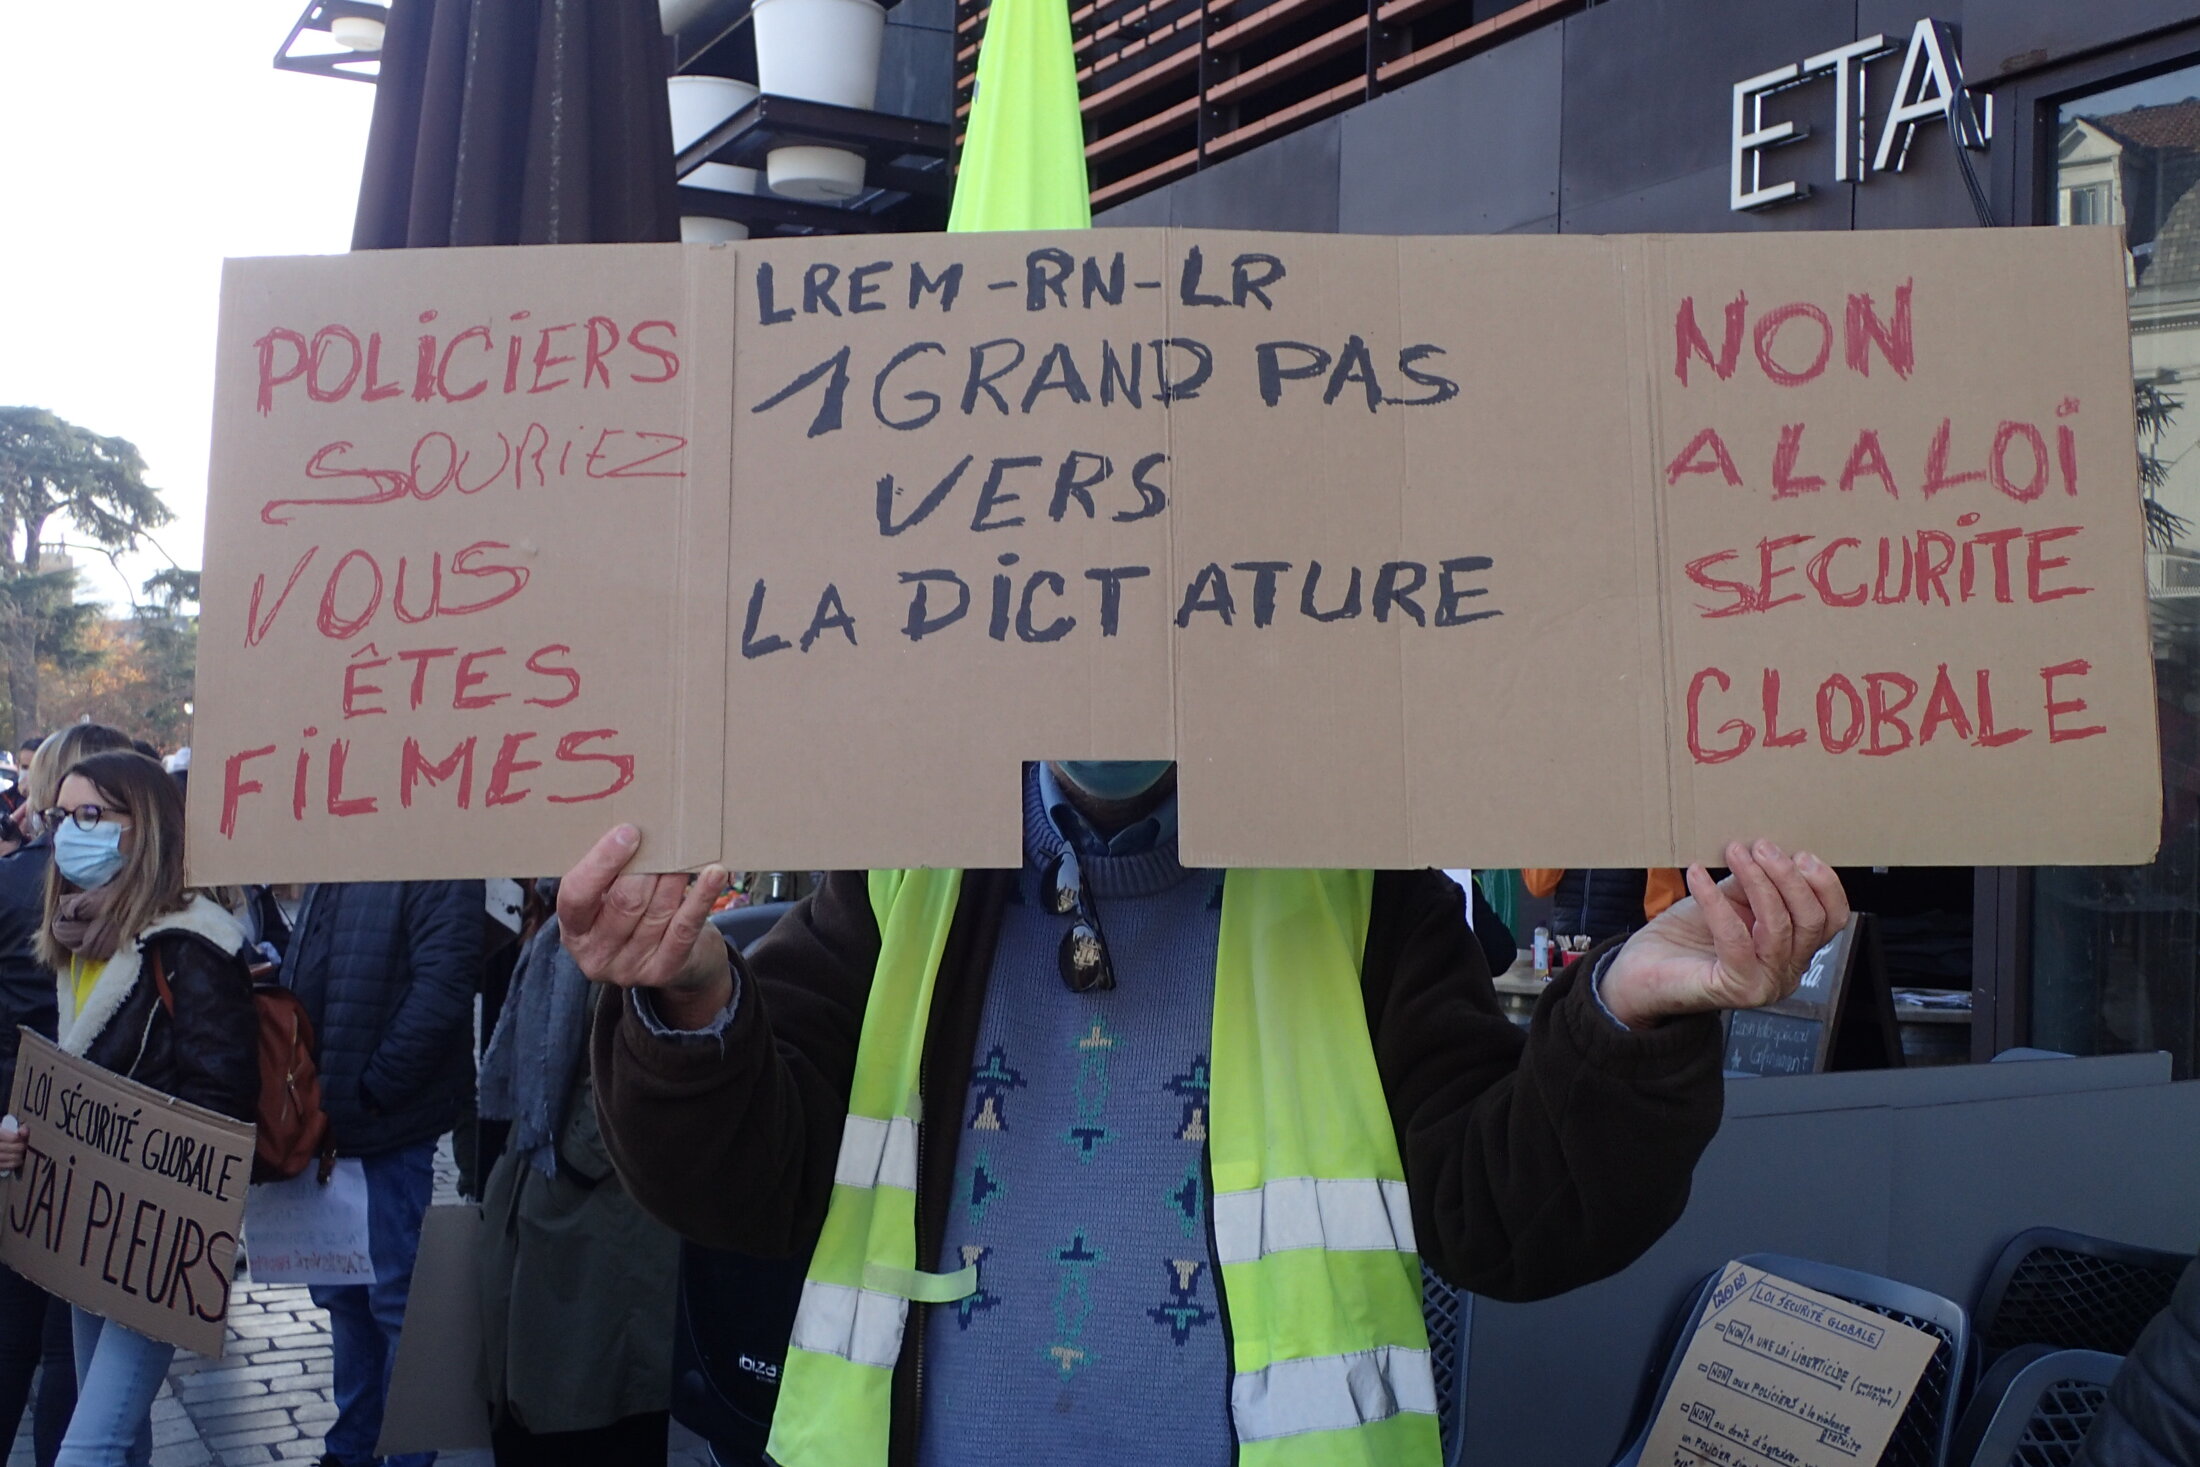 ETA
POLICIERS
SOURIEZ
VOUS
ÊTES
FILMES
LREM-RN-LR
1 GRAND PAS
VERS
LA DICTATURE
NON
A LA LOI
SECURITE
GLOBALE
LOI SÉCURITÉ GLOBALE
J'AI PLEURS
ibiza
NON
LOI SECURITÉ GLOBALE
NON A UNE LOI LIBERTICIDE
NON aux POLICIERS à la violence
gratuite
NON au droit d'agresser
un POLICIER